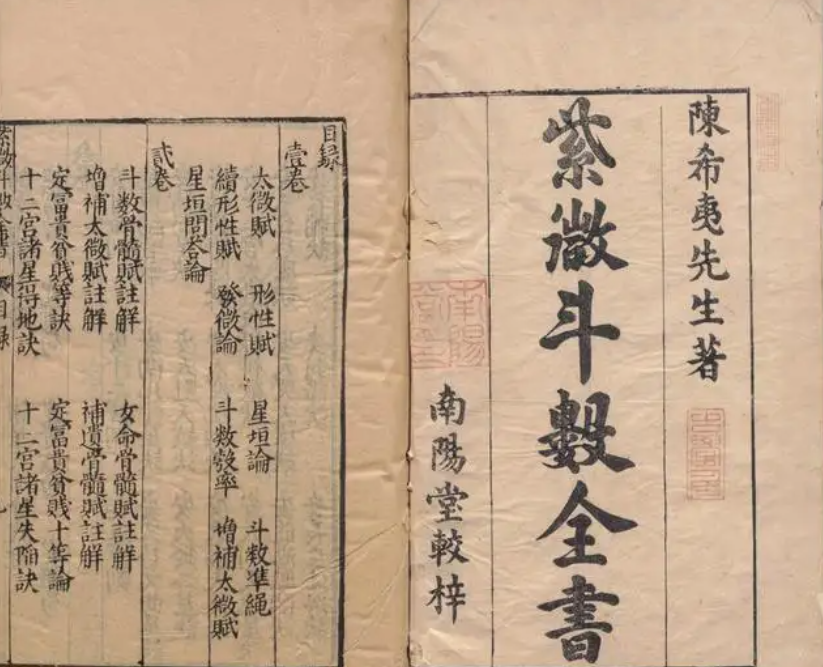 陳希夷先生著
紫微斗數全書
南陽堂較梓
目録
壹卷
太微賦 形性賦 星垣論 斗数準繩
續形性賦 發微論 斗数彀率 增補太微賦
星垣問答論
貳卷
斗数骨髓賦註解 女命骨髓賦註解
增補太微賦註解 補遺骨髓賦註解
定富貴貧賤等訣 定富貴貧賤十等論
十二宫諸星得地訣 十二宫諸星失陷訣
目録